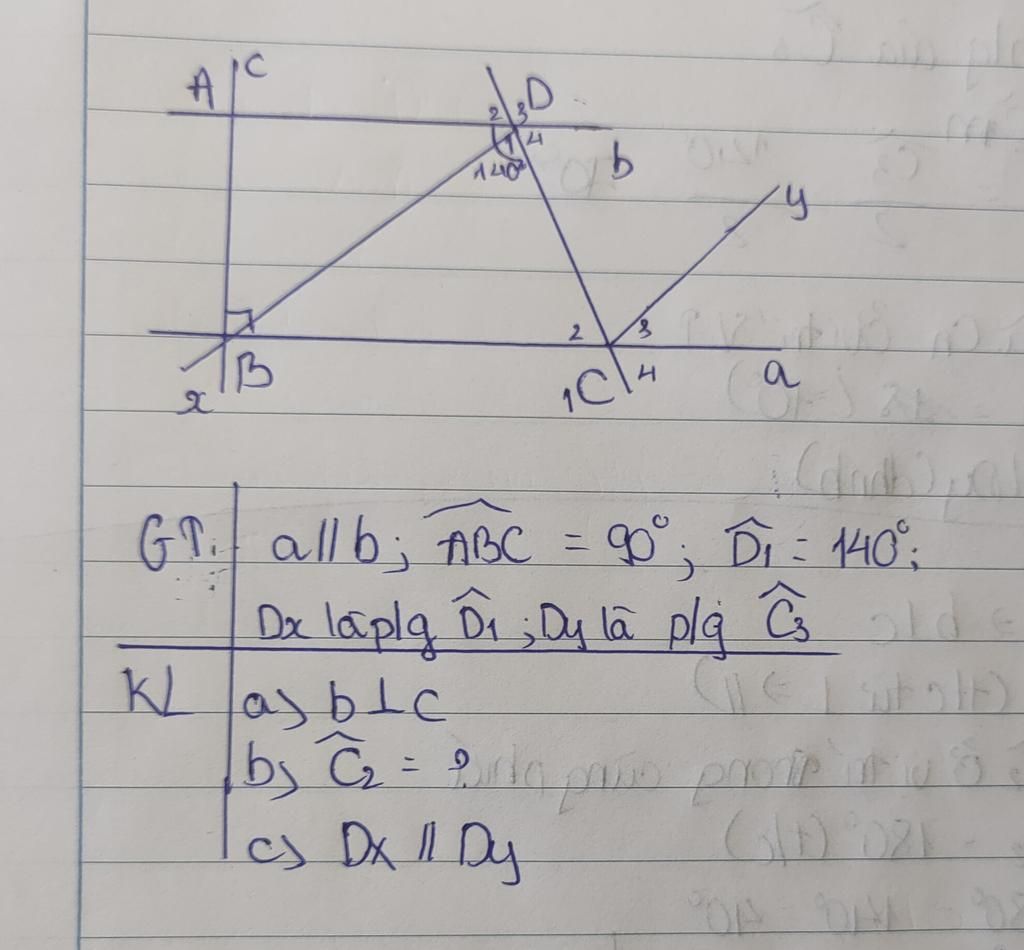 A c
D
2 3
1 4
140°
b
y
2 3
B
x
1 C 4
a
GT. a//b; ABC = 90°; D̂1 = 140°;
Dx là p/g D̂1; Dy là p/g Ĉ3
KL a) b ⊥ c
b) Ĉ2 = ?
c) Dx // Dy